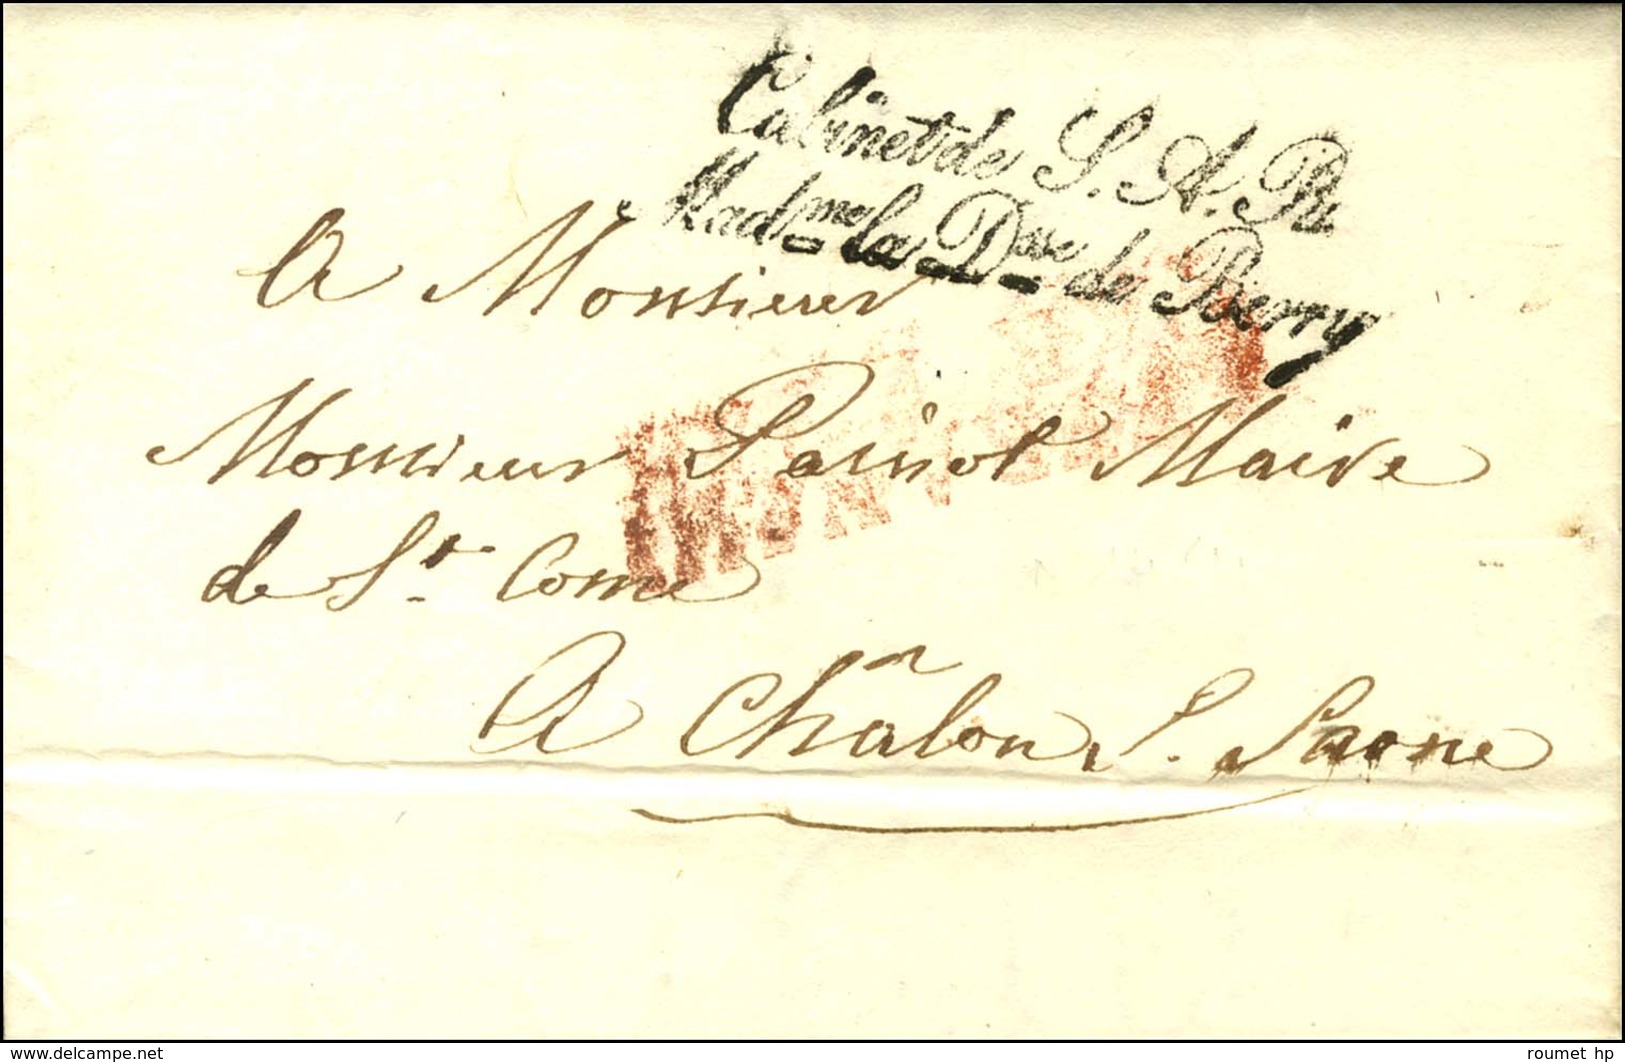 Cabinet de S. A. R.
Mad.me la D.sse de Berry
A Monsieur
Monsieur Painot Maire
de St. Cosme
A Châlon S. Saone
www.delcampe.net
roumet hp